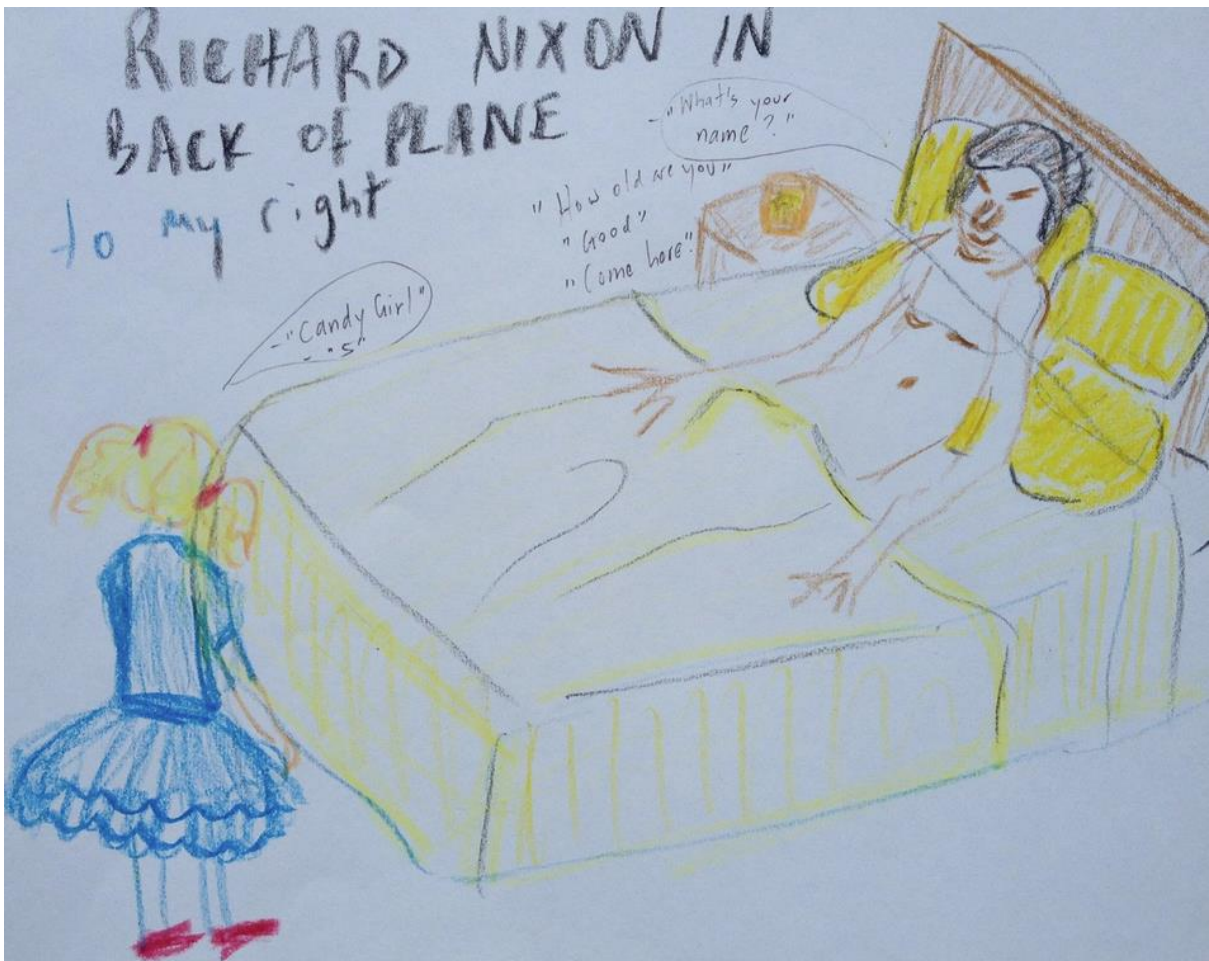 RICHARD NIXON IN
BACK OF PLANE
to my right
-"What's your
name?"
"How old are you"
"Good"
"Come here."
-"Candy Girl"
-"5"